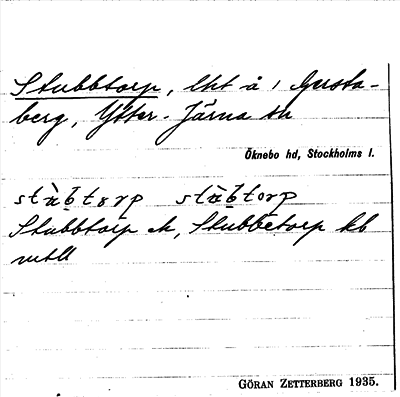 Stubbtorp, lht å 1 Gusta-
berg, Ytter-Järna sn
Öknebo hd, Stockholms l.
Stubbtorp ek, Stubbetorp kb
GÖRAN ZETTERBERG 1935.